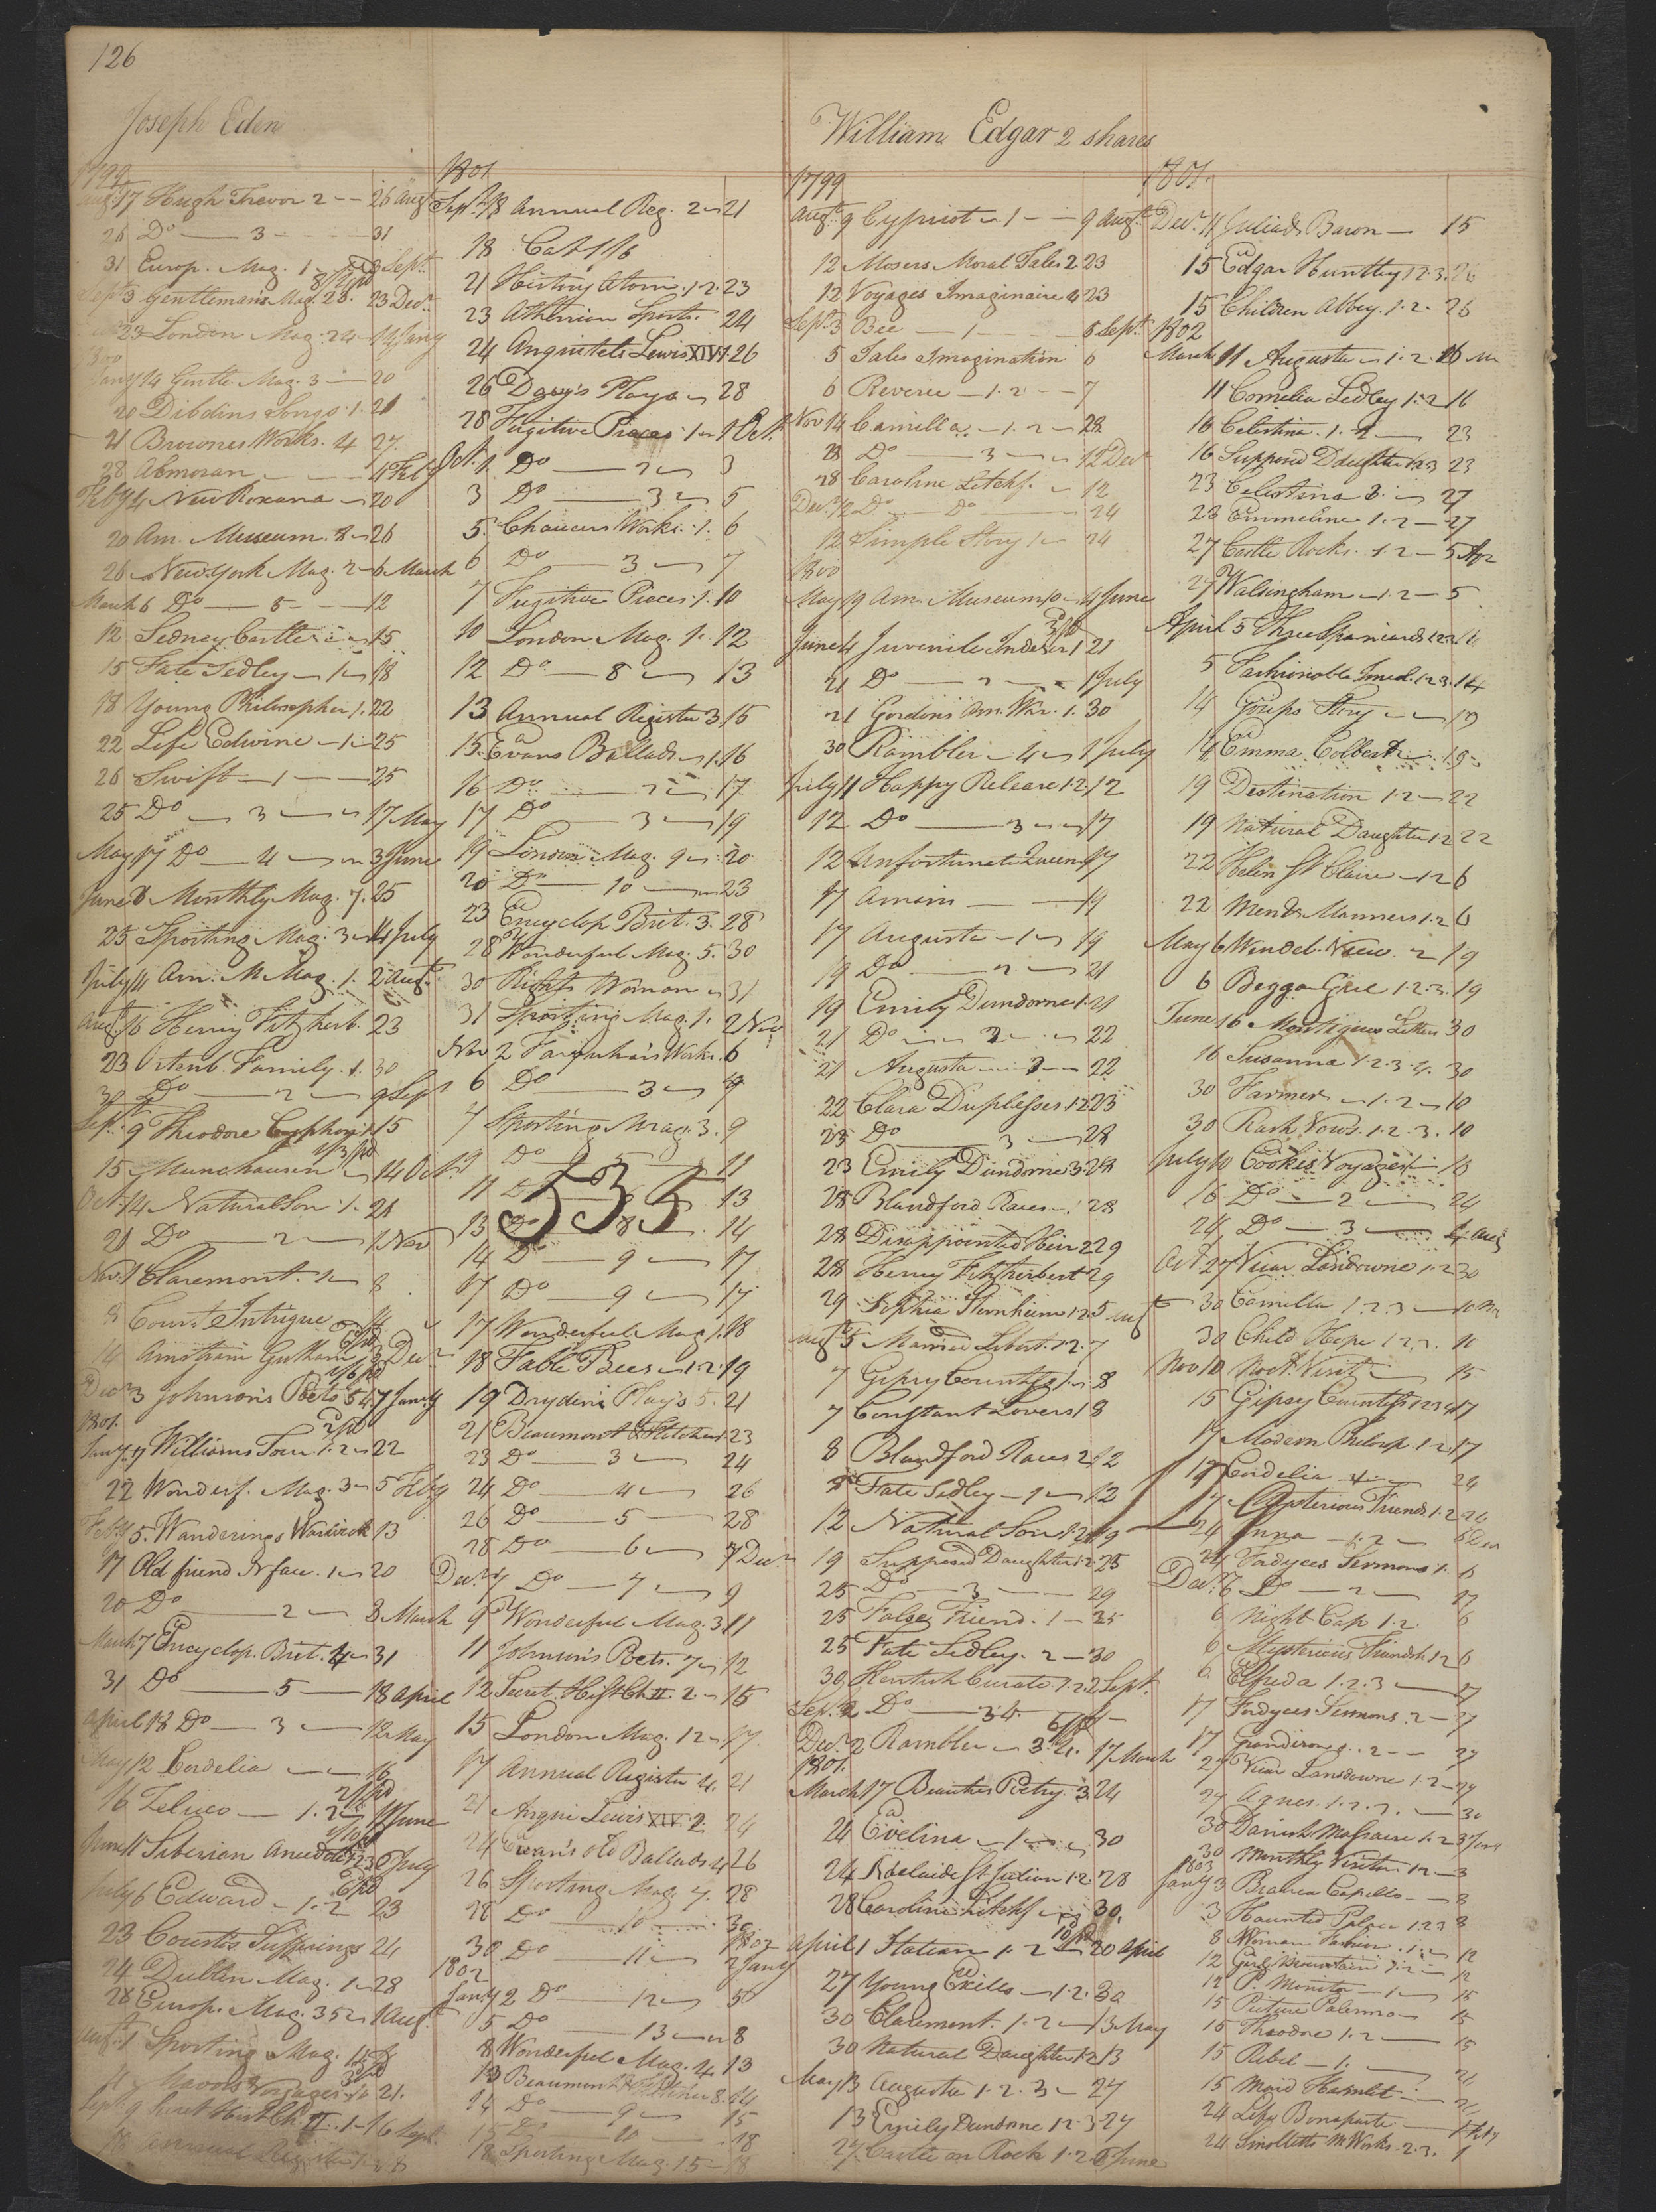 126
Joseph Eden
1799
Augt. 17 Hugh Trevor 2 26 Augt
26 Do 3 31
31 Europ. Mag. 1 3 Sept.
Sept. 3 Gentleman's Mag. 23. 23 Decr.
23 London Mag. 24 14 Jany
1800
Jany 14 Gentle. Mag. 3 20
20 Dibdins Songs. 1. 21
21 Brownes Works. 4 27.
28 Almoran 4 Feby
Feby 4 New Roxana 20
20 Am. Museum. 8 26
26 New York Mag. 2 6 March
March 6 Do 5 12
12 Sedney Castle 15
15 Fate Sedley 1 18
18 Young Philosopher 1. 22
22 Life Edwine 1 25
26 Swift 1 25
25 Do 3 17 May
May 17 Do 4 3 June
June 3 Monthly Mag. 7. 25
25 Sporting Mag. 3 4 July
July 4 Am. M. Mag. 1. 2 Augt.
Augt. 16 Henry Fitzherb. 23
23 Ortenb. Family. 1. 30
30 Do 2 9 Sept
Sept. 9 Theodore Cyphon 1 15
15 Munchausen 14 Oct.
Oct. 14 Natural Son 1. 21
21 Do 2 1 Nov
Nov. 1 Claremont. 1 8
8 Court Intrigue 14
14 3 Decr
Decr 3 Johnson's Poets 17 Jany
1801.
Jany. 17 Williams Tour 1.2 22
22 Wonderf. Mag. 3 5 Feby
Feby 5. Wanderings Warwick 13
17 Old friend N face. 1 20
20 Do 2 8 March
March 7 Encyclop. Brit. 4 31
31 Do 5 18 April
April 18 Do 3 12 May
May 12 Cordelia 16
16 Zeluco 1.2 11 June
June 11 Siberian Anecdotes 1 2 3 6 July
July 6 Edward 1.2 23
23 Courtis Sufferings 24
24 Dublin Mag. 1 28
28 Europ. Mag. 35 1 Augt.
Augt. 1 Sporting Mag. 11
11 Mavors Voyages 21.
Sept. 9 Secret Hist Ch. II. 1 16 Sept.
16 Annual Register 18
1801
Sept. 18 Annual Reg. 2 21
18 Cat 1/6
21 History Atom. 1.2. 23
23 Athenian Sports. 24
24 Anquitels Lewis XIV 1. 26
26 Davy's Plays 28
28 Fugitive Pieces 1 1 Oct.
Oct. 1. Do 2 3
3 Do 3 5
5. Chaucers Works. 1. 6
6 Do 3 7
7 Fugitive Pieces 1. 10
10 London Mag. 1. 12
12 Do 8 13
13 Annual Register 3. 15
15. Evans Ballads 1. 16
16 Do 2 17
17 Do 3 19
19 London Mag. 9 20
20 Do 10 23
23 Encyclop Brit. 3. 28
28 Wonderful Mag. 5. 30
30 Rights Woman 31
31 Sporting Mag. 1. 2 Nov
Nov 2 Farquhar's Works. 6
6 Do 3 7
7 Sporting Mag. 3. 9
9 Do 5 11
11 Do 13
13 Do 8 14
14 Do 9 17
17 Do 9 17
17 Wonderful Mag 1. 18
18 Fable Bees 1.2. 19
19 Dryden's Plays 5. 21
21 Beaumont & Fletcher 23
23 Do 3 24
24 Do 4 26
26 Do 5 28
28 Do 6 7 Decr
Decr. 7 Do 7 9
9 Wonderful Mag. 3. 11
11 Johnson's Poets. 7 12
12 Secret. Hist Ch II. 2. 15
15 London Mag. 12 17.
17 Annual Register 4. 21
21 Anqui Lewis XIV 2. 24
24 Evan's Old Ballads 4 26
26 Sporting Mag. 7. 28
28 Do 10 30
30. Do 11 2 Jany
1802
Jany 2 Do 12 5
5 Do 13 8
8 Wonderful Mag. 4. 13
13 Beaumont & Fletcher 8. 14
14 Do 9 15
15 Do 10 18
18 Sporting Mag. 15 18
535
William Edgar 2 shares
1799
Augt. 9 Cypriot 1 9 Augt.
12 Mosers Moral Tales 2 23
12 Voyages Imaginaire 4 23
Sept. 3 Bee 1 5 Sept.
5 Tales Imagination 6
6 Reverie 1.2 7
Nov 14 Camilla 1.2 28
28 Do 3 12 Decr
28 Caroline Litchf. 12
Decr. 12 Do Do 24
12 Simple Story 1 24
1800
May 19 Am. Museum 10 4 June
June 4 Juvenile Indiscr 1 21
21 Do 2 1 July
21 Gordons Am. War. 1. 30
30 Rambler 4 1 July
July 11 Happy Release 1.2. 12
12 Do 3 17
12 Unfortunate Queen 17
17 Armin 19
17 Augusta 1 19
19 Do 2 21
19 Emily Dundorne 1. 21
21 Do 2 22
21 Augusta 3 22
22 Clara Duplesses 1.2 23
23 Do 3 28
23 Emily Dundorne 3. 28
28 Blandford Races 1 28
28 Disappointed Heir 2 29
28 Henry Fitzherbert 29
29 Sophia Sternheim 1.2. 5 Augt
Augt. 5 Married Libert. 1.2. 7
7 Gipsy Countess 1 8
7 Constant Lovers 1 8
8 Blandford Races 2. 12
8 Fate Sedley 1 12
12 Natural Son 1.2. 19
19 Supposed Daughter 1.2 25
25 Do 3 29
25 False Friend. 1 25
25 Fate Sedley. 2 30
30 Kentish Curate 1.2. 2 Sept.
Sep. 2 Do 3 4
Decr. 2 Rambler 3. 4. 17 March
1801.
March 17 Beauties Poetry. 3. 24
24 Evelina 1 30
24 Adelaide St Julian 1.2. 28
28 Caroline Litchf 30.
April 1 Statian 1.2 20 April
27 Young Exiles 1.2. 30
30 Claremont. 1.2 13 May
30 Natural Daughter 1.2 13
May 13 Augusta 1.2.3 27
13 Emily Dundorne 1.2.3. 27
27 Castle on Rock 1.2 6 June
1801.
Decr. 11 Juliads Baron 15
15 Edgar Huntley 1.2.3. 26
15 Children Abbey. 1.2. 26
1802
March 11 Augusta 1.2. 16 M
11 Cornelia Sedley 1.2 16
16 Celestina. 1.2 23
16 Supposed Daughter 1.2.3 23
23 Celestina 3. 27
23 Emmeline 1.2 27
27 Castle Rock. 1.2 5 Apr
27 Walsingham 1.2 5
April 5 Three Spaniards 1.2.3. 14
5 Fashionable Invol. 1.2.3. 14
14 Gossips Story 19
14 Emma Colbert 19
19 Destination 1.2 22
19 Natural Daughter 1.2 22
22 Helen St Claire 1.2 6
22 Mends Manners 1.2 6
May 6 Wendel. View. 2 19
6 Beggar Girl 1.2.3. 19
June 16 Montagues Letters 30
16 Susanna 1.2.3.4. 30
30 Farmer 1.2 10
30 Rash Vows. 1.2.3. 10
July 10 Cookes Voyages 1 16
16 Do 2 24
24 Do 3 4 Aug
Oct 27 Vicar Landsdowne 1.2 30
30 Camilla 1.2.3 10 No
30 Child Hope 1.2.3. 10
Nov 10 Noct. Visit 15
15 Gipsy Countess 1.2.3.4 17
17 Modern Philosop. 1.2. 17
17 Cordelia 24
17 Mysterious Friends. 1.2 24
24 Anna 1.2 6 Decr
24 Fordyces Sermons 1. 6
Decr. 6 Do 2 17
6 Night Cap 1.2. 6
6 Mysterious Friendsh 1.2 6
6 Elfrida 1.2.3 17
17 Fordyces Sermons. 2 27
17 Grandison 1.2 27
27 Vicar Lansdowne 1.2 29
27 Agnes. 1.2.3. 30
30 Danish Massacre 1.2 3 Jany
30 Monthly Visitor. 12 3
1803
Jany 3 Bianca Capello 8
3 Haunted Palace 1.2.3 8
8 Norman Banditti. 1. 12
12 Girl Mountains 1.2 12
12 P. Monitor 1 15
15 Picture Palermo 15
15 Theodore 1.2 15
15 Rebel 1. 24
15 Maid Hamlet 24
24 Life Bonaparte 1 Feby
24 Smolletts M Works. 2.3. 1